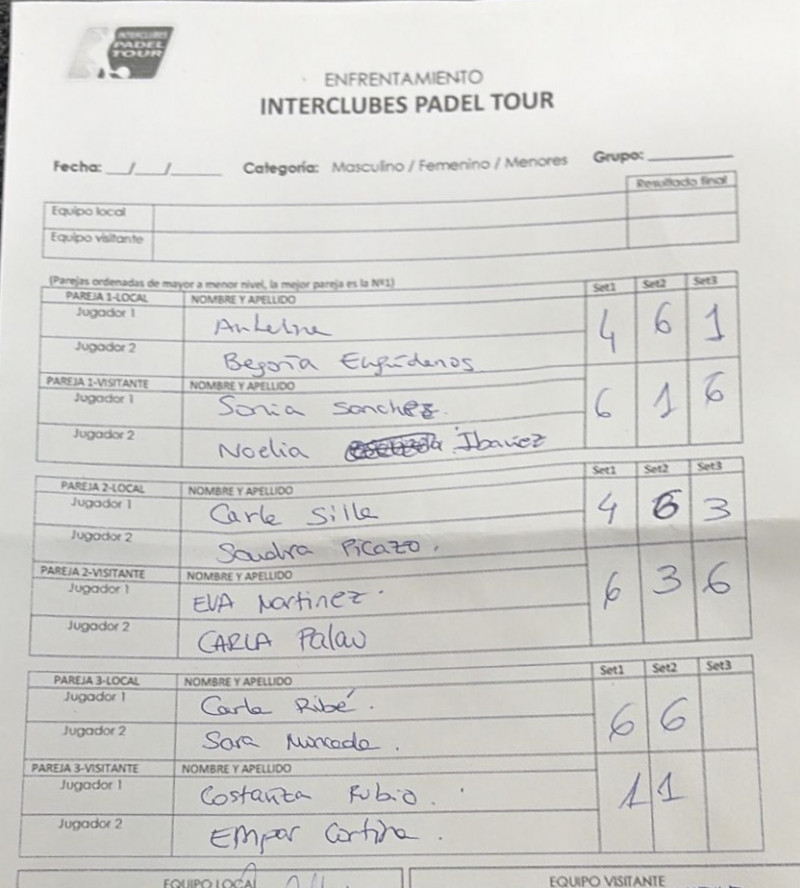 INTERCLUBES
PADEL
TOUR
ENFRENTAMIENTO
INTERCLUBES PADEL TOUR
Fecha: __/__/____ Categoría: Masculino / Femenino / Menores Grupo: ________
Resultado final
Equipo local
Equipo visitante
(Parejas ordenadas de mayor a menor nivel, la mejor pareja es la Nº1)
PAREJA 1-LOCAL NOMBRE Y APELLIDO Set1 Set2 Set3
Jugador 1 4 6 1
Jugador 2 Begoña
PAREJA 1-VISITANTE NOMBRE Y APELLIDO
Jugador 1 Sonia Sanchez. 6 1 6
Jugador 2 Noelia Ibañez
PAREJA 2-LOCAL NOMBRE Y APELLIDO Set1 Set2 Set3
Jugador 1 Carla Silla 4 6 3
Jugador 2 Sandra Picazo.
PAREJA 2-VISITANTE NOMBRE Y APELLIDO
Jugador 1 EVA Martinez 6 3 6
Jugador 2 CARLA Palau
PAREJA 3-LOCAL NOMBRE Y APELLIDO Set1 Set2 Set3
Jugador 1 Carla Ribé. 6 6
Jugador 2 Sara Moncada.
PAREJA 3-VISITANTE NOMBRE Y APELLIDO
Jugador 1 Costanza Rubio. 1 1
Jugador 2 EMpar Cortina.
EQUIPO LOCAL EQUIPO VISITANTE